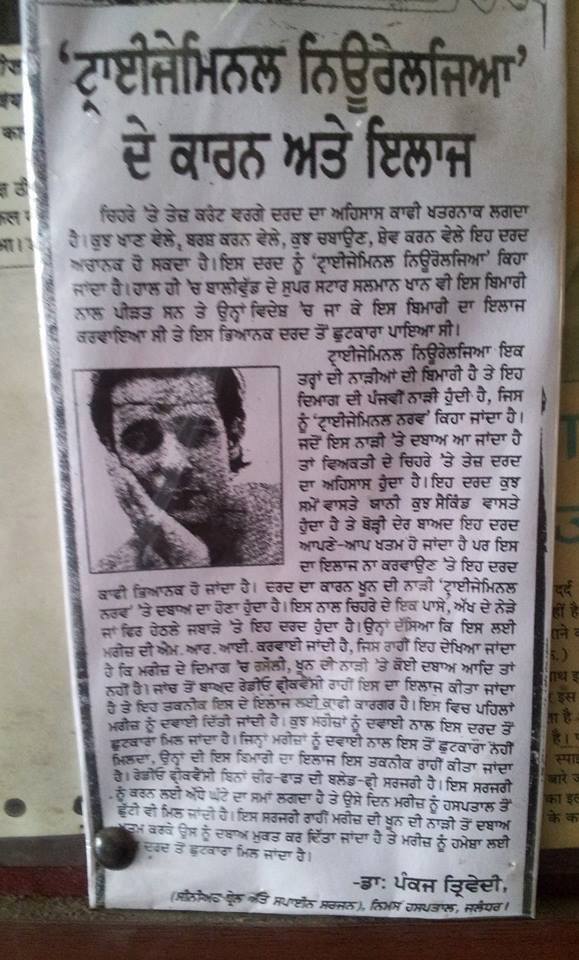 'ਟ੍ਰਾਈਜੇਮਿਨਲ ਨਿਊਰੇਲਜਿਆ'
ਦੇ ਕਾਰਨ ਅਤੇ ਇਲਾਜ
ਚਿਹਰੇ 'ਤੇ ਤੇਜ਼ ਕਰੰਟ ਵਰਗੇ ਦਰਦ ਦਾ ਅਹਿਸਾਸ ਕਾਫੀ ਖਤਰਨਾਕ ਲਗਦਾ
ਹੈ। ਕੁਝ ਖਾਣ ਵੇਲੇ, ਬੁਰਸ਼ ਕਰਨ ਵੇਲੇ, ਕੁਝ ਚਬਾਉਣ, ਸ਼ੇਵ ਕਰਨ ਵੇਲੇ ਇਹ ਦਰਦ
ਅਚਾਨਕ ਹੋ ਸਕਦਾ ਹੈ। ਇਸ ਦਰਦ ਨੂੰ 'ਟ੍ਰਾਈਜੇਮਿਨਲ ਨਿਊਰੇਲਜਿਆ' ਕਿਹਾ
ਜਾਂਦਾ ਹੈ। ਹਾਲ ਹੀ 'ਚ ਬਾਲੀਵੁੱਡ ਦੇ ਸੁਪਰ ਸਟਾਰ ਸਲਮਾਨ ਖਾਨ ਵੀ ਇਸ ਬਿਮਾਰੀ
ਨਾਲ ਪੀੜਤ ਸਨ ਤੇ ਉਨ੍ਹਾਂ ਵਿਦੇਸ਼ 'ਚ ਜਾ ਕੇ ਇਸ ਬਿਮਾਰੀ ਦਾ ਇਲਾਜ
ਕਰਵਾਇਆ ਸੀ ਤੇ ਇਸ ਭਿਆਨਕ ਦਰਦ ਤੋਂ ਛੁਟਕਾਰਾ ਪਾਇਆ ਸੀ।
ਟ੍ਰਾਈਜੇਮਿਨਲ ਨਿਊਰੇਲਜਿਆ ਇਕ
ਤਰ੍ਹਾਂ ਦੀ ਨਾੜੀਆਂ ਦੀ ਬਿਮਾਰੀ ਹੈ ਤੇ ਇਹ
ਦਿਮਾਗ ਦੀ ਪੰਜਵੀਂ ਨਾੜੀ ਹੁੰਦੀ ਹੈ, ਜਿਸ
ਨੂੰ 'ਟ੍ਰਾਈਜੇਮਿਨਲ ਨਰਵ' ਕਿਹਾ ਜਾਂਦਾ ਹੈ।
ਜਦੋਂ ਇਸ ਨਾੜੀ 'ਤੇ ਦਬਾਅ ਆ ਜਾਂਦਾ ਹੈ
ਤਾਂ ਵਿਅਕਤੀ ਦੇ ਚਿਹਰੇ 'ਤੇ ਤੇਜ਼ ਦਰਦ
ਦਾ ਅਹਿਸਾਸ ਹੁੰਦਾ ਹੈ। ਇਹ ਦਰਦ ਕੁਝ
ਸਮੇਂ ਵਾਸਤੇ ਯਾਨੀ ਕੁਝ ਸੈਕਿੰਡ ਵਾਸਤੇ
ਹੁੰਦਾ ਹੈ ਤੇ ਥੋੜੀ ਦੇਰ ਬਾਅਦ ਇਹ ਦਰਦ
ਆਪਣੇ-ਆਪ ਖਤਮ ਹੋ ਜਾਂਦਾ ਹੈ ਪਰ ਇਸ
ਦਾ ਇਲਾਜ ਨਾ ਕਰਵਾਉਣ 'ਤੇ ਇਹ ਦਰਦ
ਕਾਫੀ ਭਿਆਨਕ ਹੋ ਜਾਂਦਾ ਹੈ। ਦਰਦ ਦਾ ਕਾਰਨ ਖੂਨ ਦੀ ਨਾੜੀ 'ਟ੍ਰਾਈਜੇਮਿਨਲ
ਨਰਵ' 'ਤੇ ਦਬਾਅ ਦਾ ਹੋਣਾ ਹੁੰਦਾ ਹੈ। ਇਸ ਨਾਲ ਚਿਹਰੇ ਦੇ ਇਕ ਪਾਸੇ, ਅੱਖ ਦੇ ਨੇੜੇ
ਜਾਂ ਫਿਰ ਹੇਠਲੇ ਜਬਾੜੇ 'ਤੇ ਇਹ ਦਰਦ ਹੁੰਦਾ ਹੈ। ਉਨ੍ਹਾਂ ਦੱਸਿਆ ਕਿ ਇਸ ਲਈ
ਮਰੀਜ਼ ਦੀ ਐਮ. ਆਰ. ਆਈ. ਕਰਵਾਈ ਜਾਂਦੀ ਹੈ, ਜਿਸ ਰਾਹੀਂ ਇਹ ਦੇਖਿਆ ਜਾਂਦਾ
ਹੈ ਕਿ ਮਰੀਜ਼ ਦੇ ਦਿਮਾਗ 'ਚ ਰਸੌਲੀ, ਖੂਨ ਦੀ ਨਾੜੀ 'ਤੇ ਕੋਈ ਦਬਾਅ ਆਦਿ ਤਾਂ
ਨਹੀਂ ਹੈ। ਜਾਂਚ ਤੋਂ ਬਾਅਦ ਰੇਡੀਓ ਫ੍ਰੀਕਵੈਂਸੀ ਰਾਹੀਂ ਇਸ ਦਾ ਇਲਾਜ ਕੀਤਾ ਜਾਂਦਾ
ਹੈ ਤੇ ਇਹ ਤਕਨੀਕ ਇਸ ਦੇ ਇਲਾਜ ਲਈ ਕਾਫੀ ਕਾਰਗਰ ਹੈ। ਇਸ ਵਿਚ ਪਹਿਲਾਂ
ਮਰੀਜ਼ ਨੂੰ ਦਵਾਈ ਦਿੱਤੀ ਜਾਂਦੀ ਹੈ। ਕੁਝ ਮਰੀਜ਼ਾਂ ਨੂੰ ਦਵਾਈ ਨਾਲ ਇਸ ਦਰਦ ਤੋਂ
ਛੁਟਕਾਰਾ ਮਿਲ ਜਾਂਦਾ ਹੈ। ਜਿਨ੍ਹਾਂ ਮਰੀਜ਼ਾਂ ਨੂੰ ਦਵਾਈ ਨਾਲ ਇਸ ਤੋਂ ਛੁਟਕਾਰਾ ਨਹੀਂ
ਮਿਲਦਾ, ਉਨ੍ਹਾਂ ਦੀ ਇਸ ਬਿਮਾਰੀ ਦਾ ਇਲਾਜ ਇਸ ਤਕਨੀਕ ਰਾਹੀਂ ਕੀਤਾ ਜਾਂਦਾ
ਹੈ। ਰੇਡੀਓ ਫ੍ਰੀਕਵੈਂਸੀ ਬਿਨਾਂ ਚੀਰ-ਫਾੜ ਦੀ ਬਲੇਡ-ਫ੍ਰੀ ਸਰਜਰੀ ਹੈ। ਇਸ ਸਰਜਰੀ
ਨੂੰ ਕਰਨ ਲਈ ਅੱਧੇ ਘੰਟੇ ਦਾ ਸਮਾਂ ਲਗਦਾ ਹੈ ਤੇ ਉਸੇ ਦਿਨ ਮਰੀਜ਼ ਨੂੰ ਹਸਪਤਾਲ ਤੋਂ
ਛੁੱਟੀ ਵੀ ਮਿਲ ਜਾਂਦੀ ਹੈ। ਇਸ ਸਰਜਰੀ ਰਾਹੀਂ ਮਰੀਜ਼ ਦੀ ਖੂਨ ਦੀ ਨਾੜੀ ਤੋਂ ਦਬਾਅ
ਕਰਕੇ ਉਸ ਨੂੰ ਦਬਾਅ ਮੁਕਤ ਕਰ ਦਿੱਤਾ ਜਾਂਦਾ ਹੈ ਤੇ ਮਰੀਜ਼ ਨੂੰ ਹਮੇਸ਼ਾ ਲਈ
ਦਰਦ ਤੋਂ ਛੁਟਕਾਰਾ ਮਿਲ ਜਾਂਦਾ ਹੈ।
-ਡਾ: ਪੰਕਜ ਤ੍ਰਿਵੇਦੀ,
(ਸੀਨੀਅਰ ਬ੍ਰੇਨ ਅਤੇ ਸਪਾਈਨ ਸਰਜਨ), ਨਿਮਸ ਹਸਪਤਾਲ, ਜਲੰਧਰ।